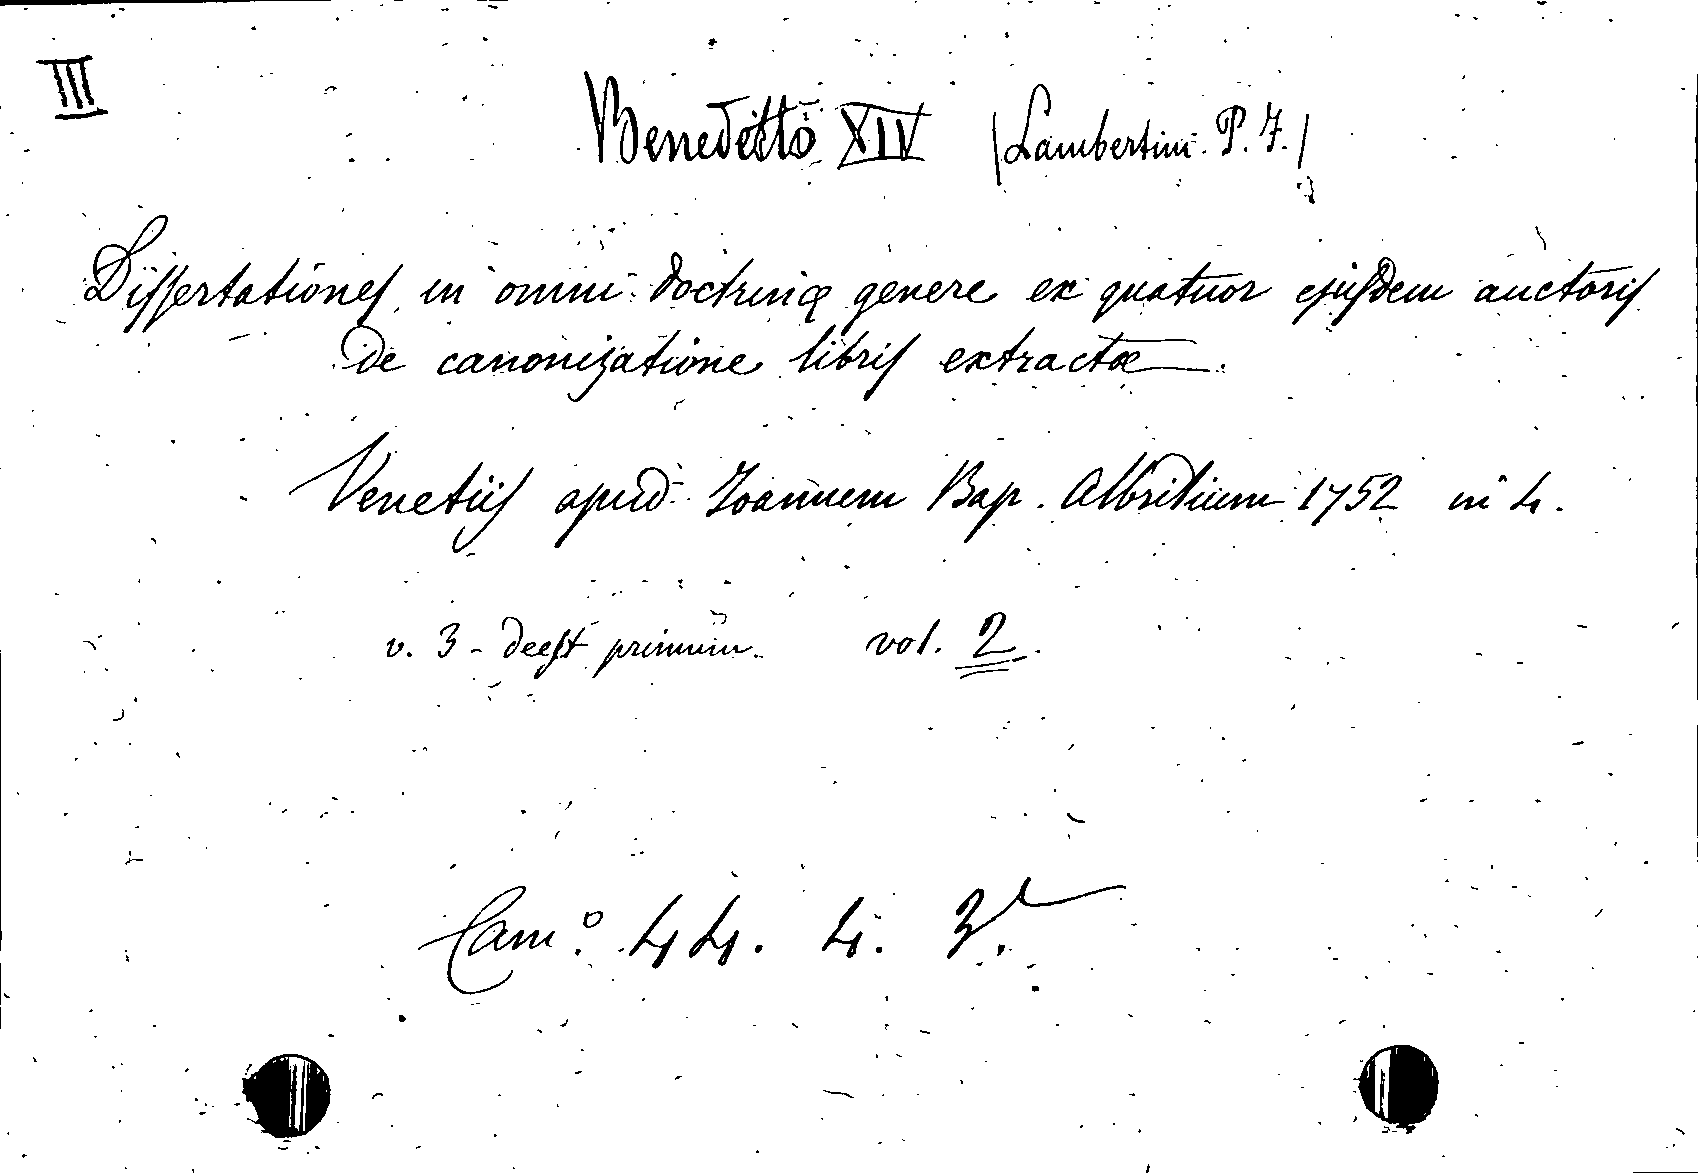 III
Benedetto XIV (Lambertini P. I.)
Dissertationes in omni doctrinæ genere ex quatuor ejusdem auctoris
de canonizatione libris extractæ
Venetiis apud Joannem Bap. Albritium 1752 in 4.
v. 3 - deest primum. vol. 2.
Cam.º 44. 4. 3.